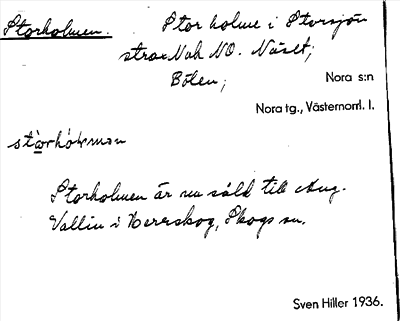 Storholmen. Stor holme i Storsjön
strax NO. Näset,
Bölen; Nora s:n
Nora tg., Västernorrl. l.
Storholmen är nu såld till Aug.
Vallin i Herrskog, Skogs sn.
Sven Hiller 1936.